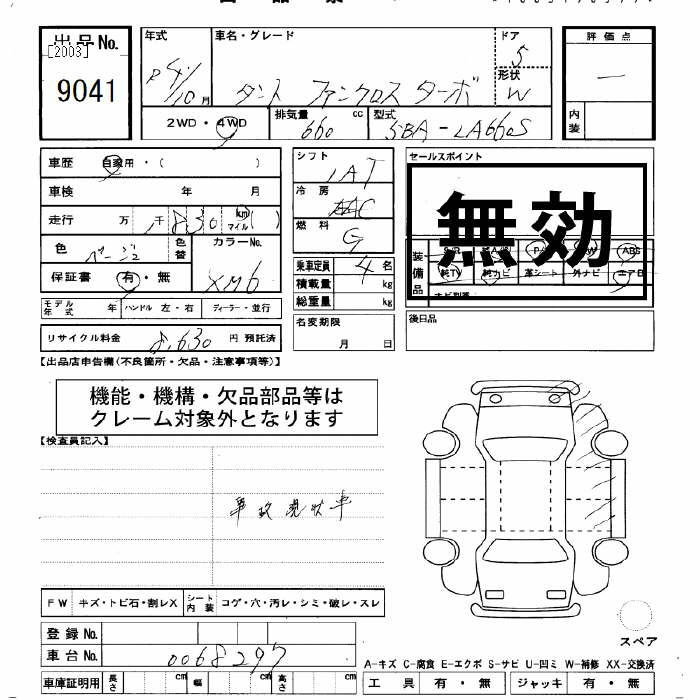 出品No. [2003] 9041
年式 R4/10月
車名・グレード タント ファンクロス ターボ
ドア 5
形状 W
2WD・4WD
排気量 660 cc
型式 5BA-LA660S
評価点 —
内装
車歴 自家用・( )
車検 年 月
走行 万 千 830 km マイル ( )
色 ベージュ 色替 カラーNo. XM6
保証書 有・無
モデル年式 年 ハンドル 左・右 ディーラー・並行
リサイクル料金 8,630 円 預託済
シフト IAT
冷房 AAC
燃料 G
乗車定員 4 名
積載量 kg
総重量 kg
名変期限 月 日
セールスポイント
無効
装備品 S/R 純A/W P/S P/W ABS
純TV 純ナビ 革シート 外ナビ エアB
後日品
【出品店申告欄(不良箇所・欠品・注意事項等)】
機能・機構・欠品部品等は
クレーム対象外となります
【検査員記入】
事故現状車
FW キズ・トビ石・割レX シート内装 コゲ・穴・汚レ・シミ・破レ・スレ
登録No.
車台No. 0068297
車庫証明用 長さ cm 幅 cm 高さ cm
スペア
A-キズ C-腐食 E-エクボ S-サビ U-凹ミ W-補修 XX-交換済
工具 有・無 ジャッキ 有・無